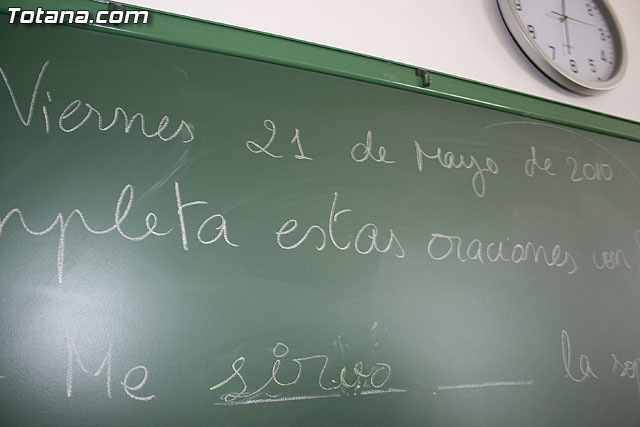 Totana.com
Viernes 21 de Mayo de 2010
mpleta estas oraciones con
Me sirvo ____ la so